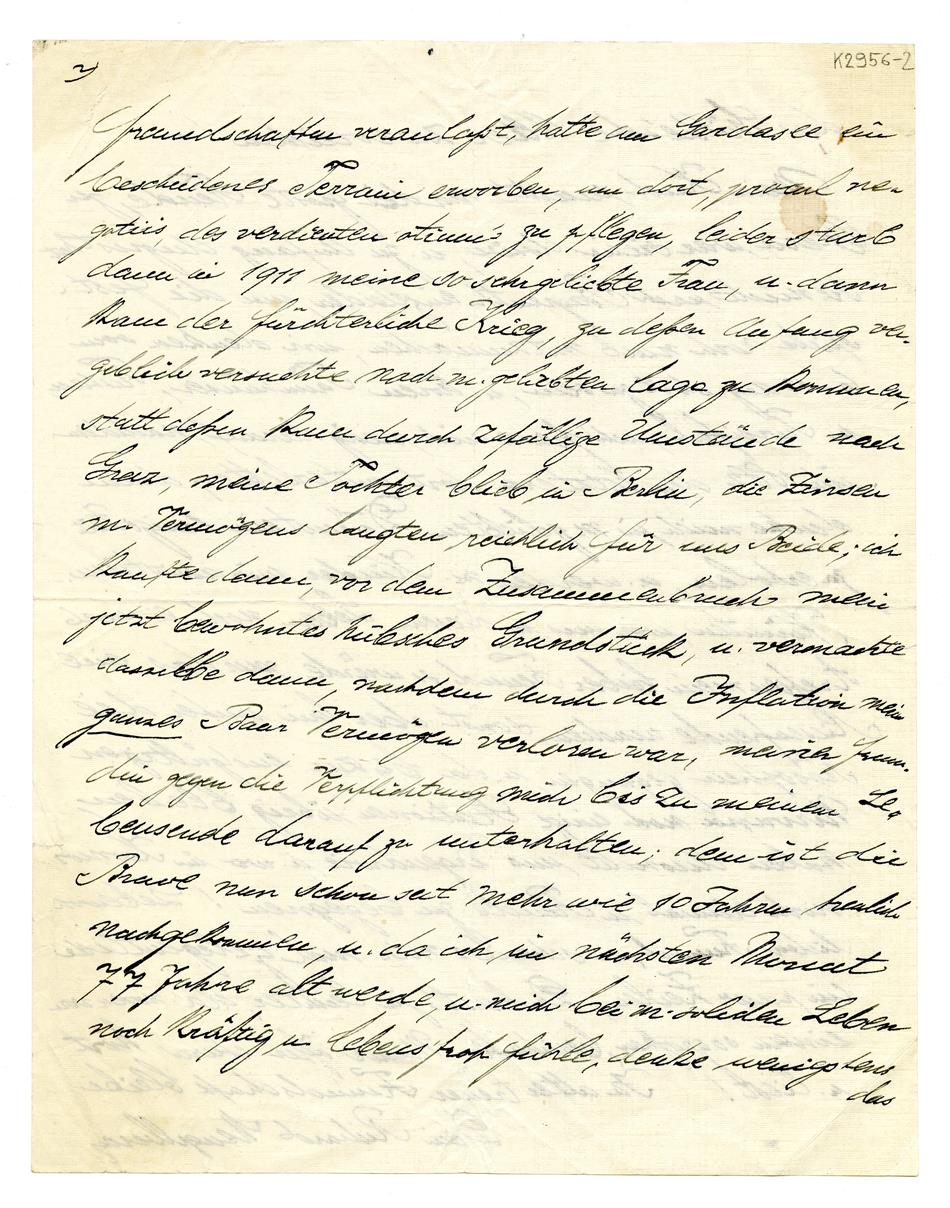 2)
K2956-2
freundschaften veranlaßt, hatte am Gardasee ein
bescheidenes Terrain erworben, um dort, procul ne-
gotiis, des verdienten otiums zu pflegen, leider starb
dann in 1911 meine so sehr geliebte Frau, u. dann
kam der fürchterliche Krieg, zu deßen Anfang ver-
geblich versuchte nach m. geliebten lago zu kommen,
statt deßen kam durch zufällige Umstände nach
Graz, meine Tochter blieb in Berlin, die Zinsen
m. Vermögens langten reichlich für uns Beide; ich
kaufte dann, vor dem Zusammenbruch mein
jetzt bewohntes hübsches Grundstück, u. vermachte
dasselbe dann, nachdem durch die Inflation mein
ganzes Baar Vermögen verloren war, meiner Freun-
din gegen die Verpflichtung mich bis zu meinem Le-
bensende darauf zu unterhalten; dem ist die
Brave nun schon seit mehr wie 10 Jahren treulich
nachgekommen, u. da ich im nächsten Monat
77 Jahre alt werde, u. mich bei m. soliden Leben
noch kräftig u lebensfroh fühle, denke wenigstens
das